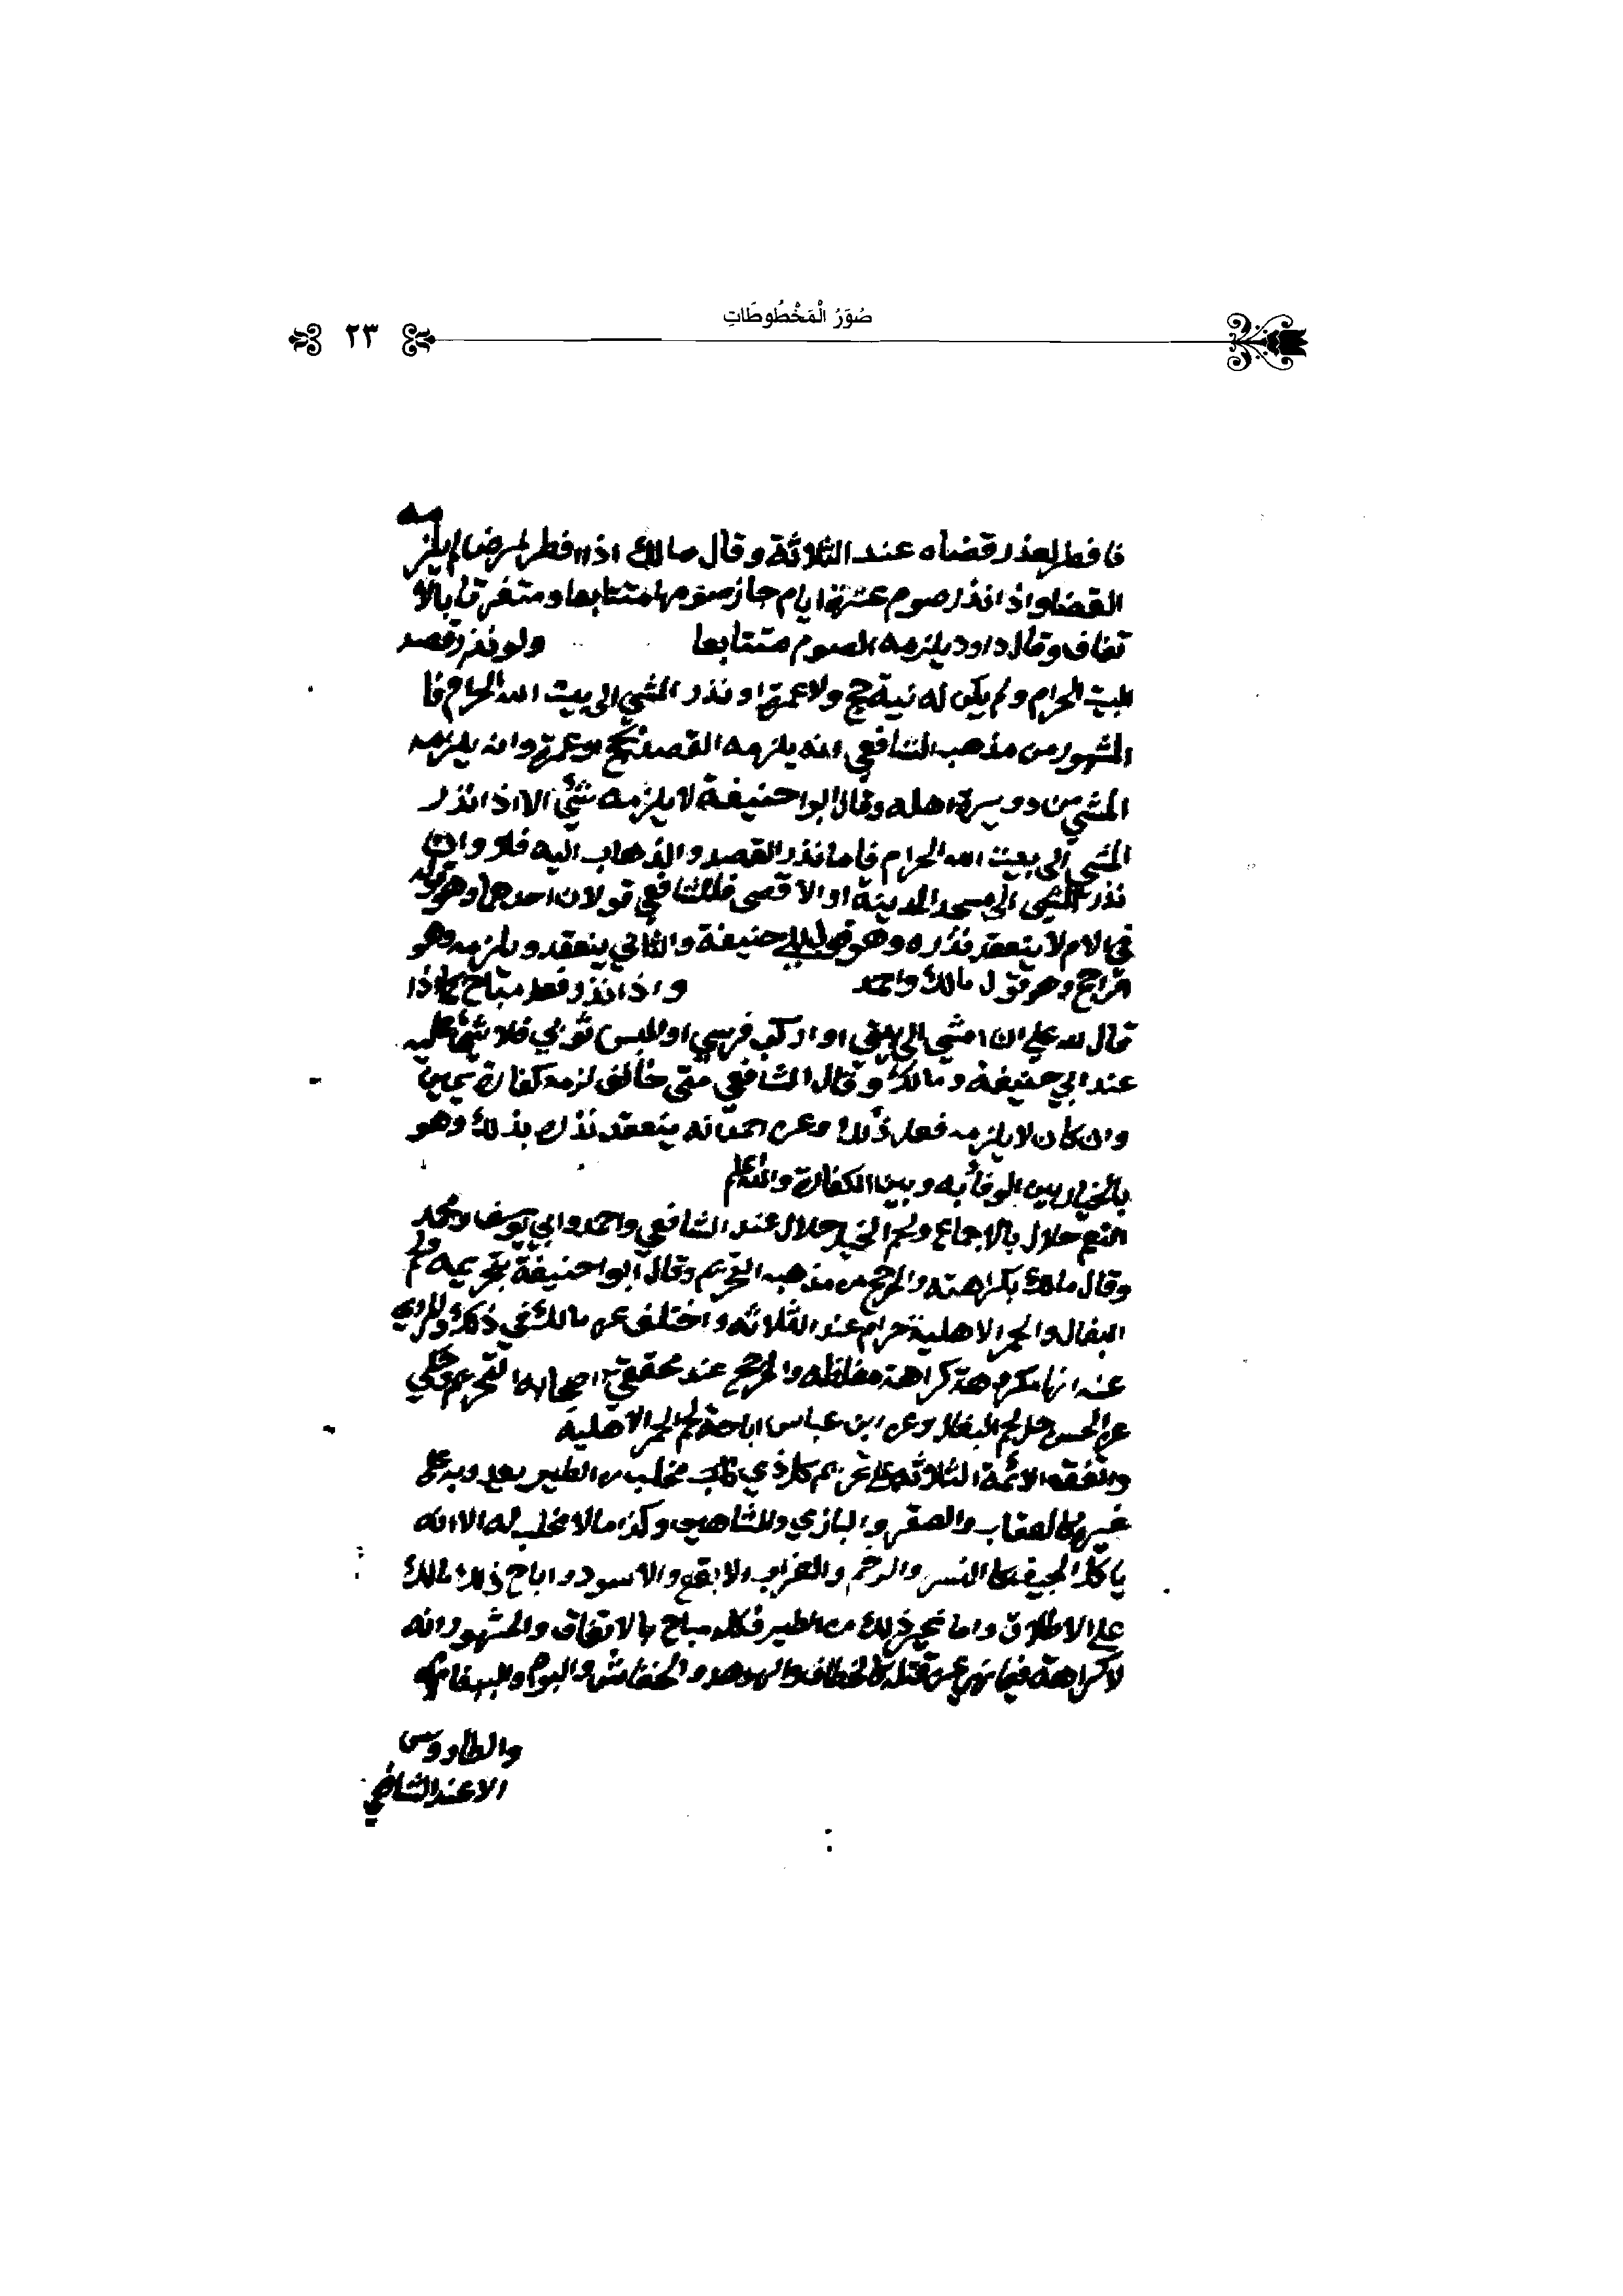 صُوَرُ الْمَخْطُوطَاتِ
٢٣
فافطر لعذر قضاه عند الثلاثة وقال مالك اذا افطر لمرض لم يلزمه
القضا واذا نذر صوم عشرة ايام جاز صومها متتابعا ومتفرقا بالا
تفاق وقال داود يلزمه الصوم متتابعا ولو نذر قصد
البيت الحرام ولم يكن له نية حج ولا عمرة او نذر المشي الى بيت الله الحرام فا
المشهور من مذهب الشافعي انه يلزمه القصد بحج او عمرة وانه يلزمه
المشي من دويرة اهله وقال ابوا حنيفة لا يلزمه شئ الا اذا نذر
المشي الى بيت الله الحرام فاما نذر القصد والذهاب اليه فلا وان
نذر المشي الى مسجد المدينة او الاقصى فللشافعي قولان احدهما وهو قوله
في الام لا ينعقد نذره وهو قول ابي حنيفة والثاني ينعقد ويلزمه وهو
الراجح وهو قول مالك واحمد واذا نذر فعل مباح كما اذا
قال لله علي ان امشي الى بيتي او اركب فرسي او البس ثوبي فلا شئ عليه
عند ابي حنيفة ومالك وقال الشافعي متى خالف لزمه كفارة يمين
وان كان لا يلزمه فعل ذلك وعن احمد انه ينعقد نذره بذلك وهو
بالخيار بين الوفا به وبين الكفارة والله اعلم
النعم حلال بالاجماع ولحم الخيل حلال عند الشافعي واحمد وابي يوسف ومحمد
وقال مالك بكراهته والمرجح من مذهبه التحريم وقال ابوا حنيفة بتحريمه ولحم
البغال والحمر الاهلية حرام عند الثلاثه واختلف عن مالك في ذلك والمروي
عنه انها مكروهة كراهة مغلظه والمرجح عند محققي اصحابه التحريم وحكي
عن الحسن حل لحم البغال وعن ابن عباس اباحة لحم الحمر الاهلية
واتفقه الائمة الثلاثه على تحريم كل ذي مخلب من الطير يعدو به على
غيره كالعقاب والصقر والبازي والشاهين وكذا مالا مخلب له الا انه
ياكل الجيف كالنسر والرخم والغراب الابقع والاسود واباح ذلك مالك
على الاطلاق واما غير ذلك من الطير فكله مباح بالاتفاق والمشهور انه
لا كراهة فيما نهي عن قتله كالخطاف والهدهد والخفاش والبوم والببغا
والطاووس
الا عند الشافعي